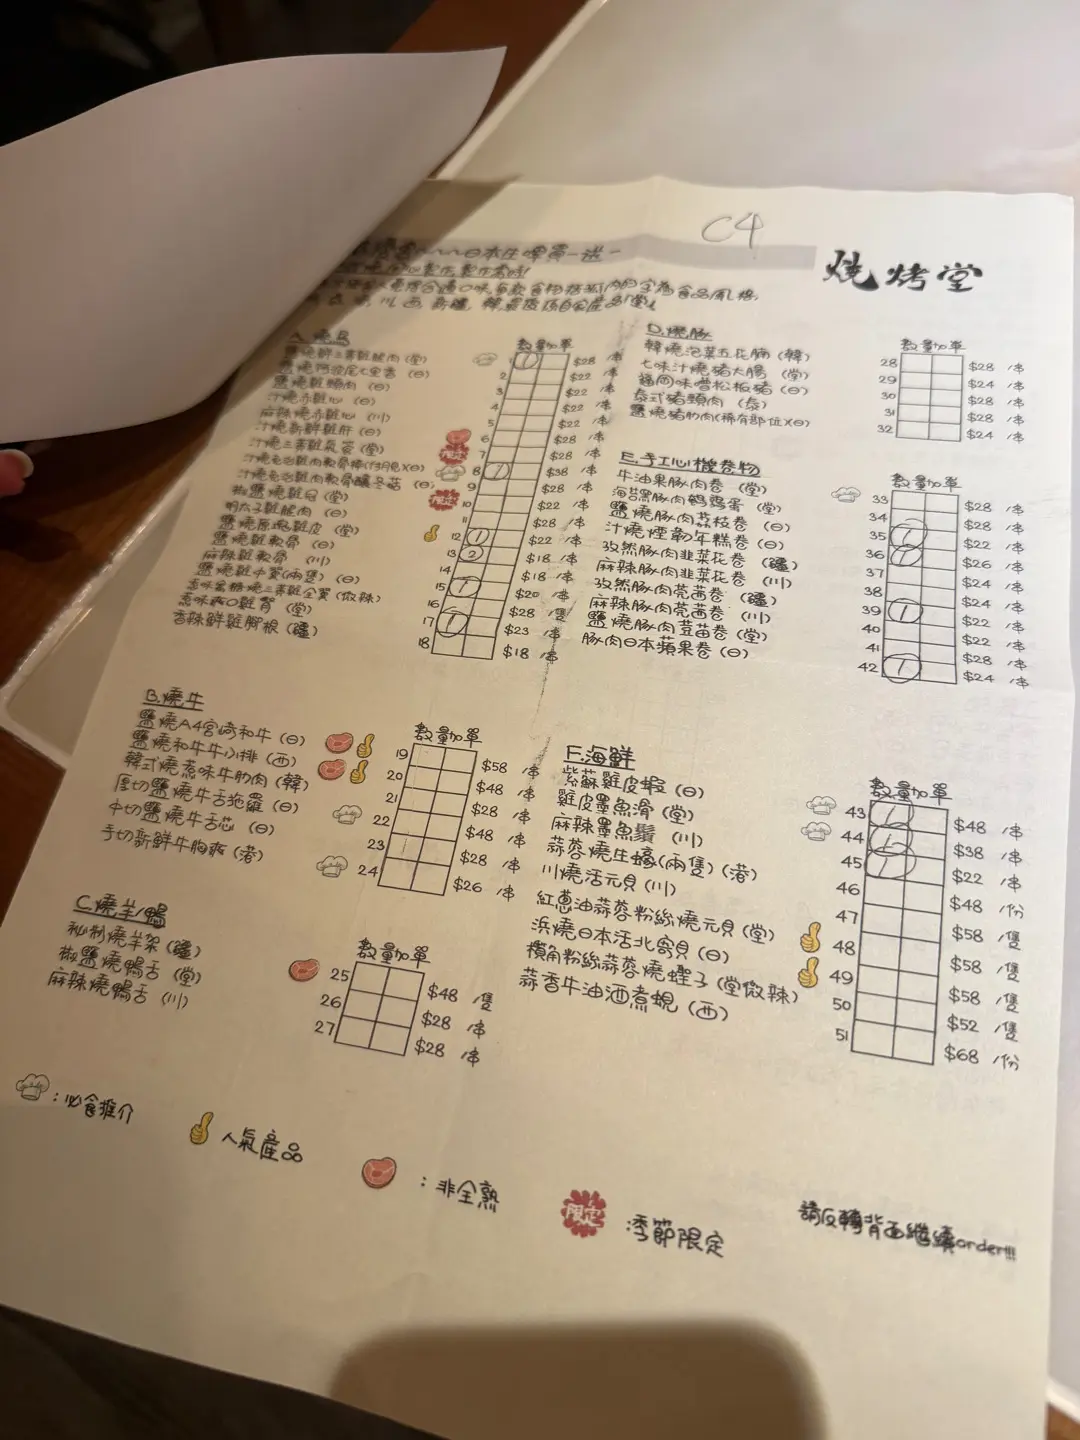 C4
燒烤堂
日本生啤買一送一
A.燒鳥
數量 加單
鹽燒鮮三黃雞腿肉(堂) 1 ① $28 /串
鹽燒阿波尾七里香(日) 2 $22 /串
鹽燒雞頸肉(日) 3 $22 /串
汁燒赤雞心(日) 4 $22 /串
麻辣燒赤雞心(川) 5 $22 /串
汁燒新鮮雞肝(日) 6 $28 /串
汁燒三黃雞 (堂) 限定 7 $28 /串
汁燒 雞肉軟骨棒(付月見)(日) 8 ① $38 /串
汁燒 雞肉軟骨釀冬菇(日) 9 $28 /串
椒鹽燒雞 (堂) 限定 10 $22 /串
明太子雞腿肉(日) 11 $28 /串
鹽燒 雞皮(堂) 12 ① $22 /串
鹽燒雞軟骨(日) 13 ② $18 /串
麻辣雞軟骨(川) 14 $18 /串
鹽燒雞中翼(兩隻)(日) 15 ① $20 /串
蔥味 燒三黃雞全翼(微辣) 16 $28 /隻
蔥味 雞腎(堂) 17 ① $23 /串
香辣鮮雞腳根(疆) 18 $18 /串
B.燒牛
數量 加單
鹽燒A4宮崎和牛(日) 19 $58 /串
鹽燒和牛牛小排(西) 20 $48 /串
韓式燒蔥味牛肋肉(韓) 21 $28 /串
厚切鹽燒牛舌拖羅(日) 22 $48 /串
中切鹽燒牛舌芯(日) 23 $28 /串
手切新鮮牛胸爽(港) 24 $26 /串
C.燒羊/鴨
數量 加單
秘制燒羊架(疆) 25 $48 /隻
椒鹽燒鴨舌(堂) 26 $28 /串
麻辣燒鴨舌(川) 27 $28 /串
D.燒豚
數量 加單
韓燒泡菜五花腩(韓) 28 $28 /串
七味汁燒豬大腸(堂) 29 $24 /串
福岡味噌松板豬(日) 30 $28 /串
泰式豬頸肉(泰) 31 $28 /串
鹽燒豬肋肉(稀有部位)(日) 32 $24 /串
E.手工心機卷物
數量 加單
牛油果豚肉卷(堂) 33 $28 /串
海苔黑豚肉鵪鶉蛋(堂) 34 $28 /串
鹽燒豚肉荔枝卷(日) 35 ① $22 /串
汁燒煙韌年糕卷(日) 36 ① $26 /串
孜然豚肉韭菜花卷(疆) 37 $24 /串
麻辣豚肉韭菜花卷(川) 38 $24 /串
孜然豚肉芫茜卷(疆) 39 ① $22 /串
麻辣豚肉芫茜卷(川) 40 $22 /串
鹽燒豚肉荳苗卷(堂) 41 $28 /串
豚肉日本蘋果卷(日) 42 ① $24 /串
F.海鮮
數量 加單
紫蘇雞皮蝦(日) 43 ① $48 /串
雞皮墨魚滑(堂) 44 ① $38 /串
麻辣墨魚鬚(川) 45 ① $22 /串
蒜蓉燒生蠔(兩隻)(港) 46 $48 /份
川燒活元貝(川) 47 $58 /隻
紅蔥油蒜蓉粉絲燒元貝(堂) 48 $58 /隻
浜燒日本活北寄貝(日) 49 $58 /隻
櫕角粉絲蒜蓉燒蟶子(堂微辣) 50 $52 /隻
蒜香牛油酒煮蜆(西) 51 $68 /份
:必食推介
人氣產品
:非全熟
限定 季節限定
請反轉背面繼續order!!!